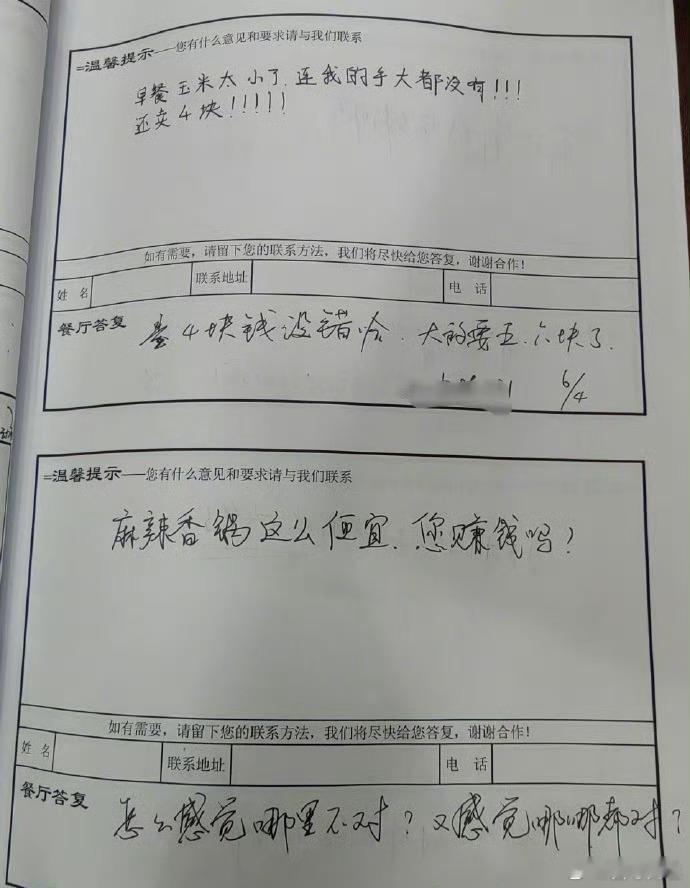 =温馨提示——您有什么意见和要求请与我们联系
早餐玉米太小了.连我的手大都没有!!!
还卖4块!!!!!
如有需要,请留下您的联系方法,我们将尽快给您答复,谢谢合作!
姓 名 联系地址 电 话
餐厅答复 4块钱没错哈.大的要五.六块了.
6/4
=温馨提示——您有什么意见和要求请与我们联系
麻辣香锅这么便宜.您赚钱吗?
如有需要,请留下您的联系方法,我们将尽快给您答复,谢谢合作!
姓 名 联系地址 电 话
餐厅答复 怎么感觉哪里不对?又感觉哪哪都对?